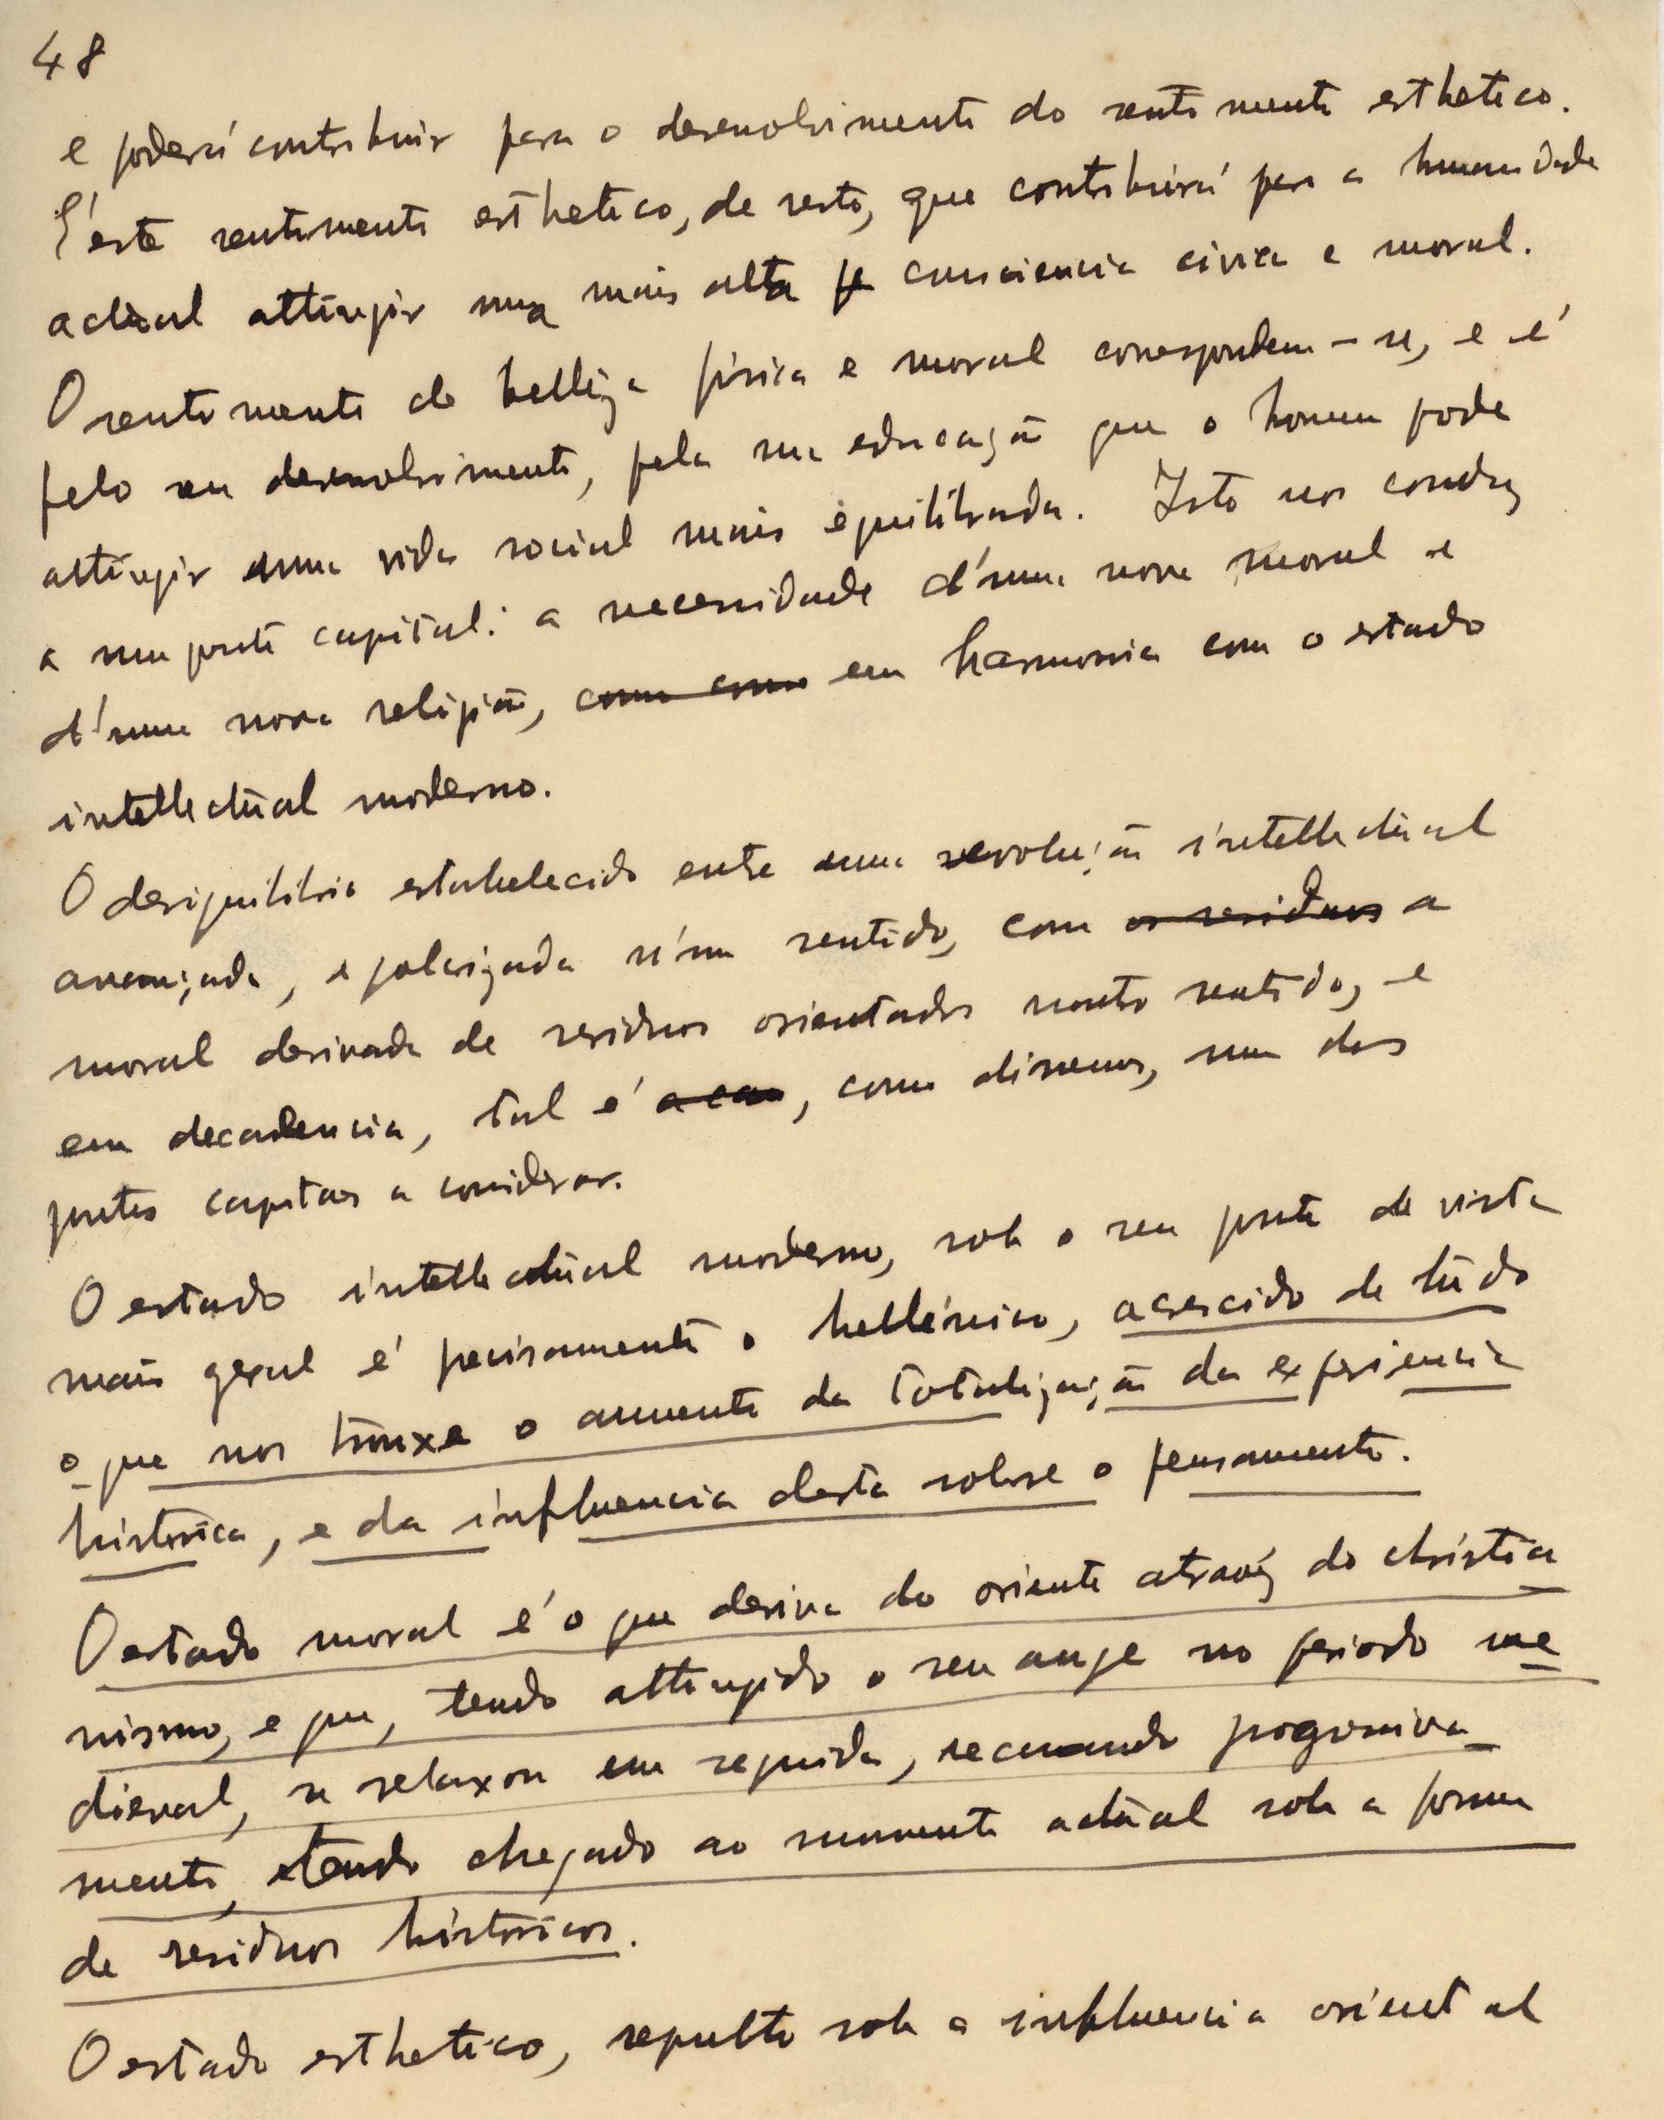 48
e poderá contribuir para o desenvolvimento do sentimento esthetico.
É este sentimento esthetico, de resto, que contribuirá para a humanidade
actual attingir uma mais alta consciencia civica e moral.
O sentimento de belleza fisica e moral correspondem-se, e é
pelo seu desenvolvimento, pela sua educação que o homem pode
attingir uma vida social mais equilibrada. Isto nos conduz
a um ponto capital: a necessidade d'uma nova moral e
d'uma nova religião, como como em harmonia com o estado
intellectual moderno.
O desiquilibrio estabelecido entre uma revolução intellectual
avançada, e polarizada n'um sentido, com os residuos a
moral derivada de residuos orientados noutro sentido, e
em decadencia, tal é, como dissemos, um dos
pontos capitaes a considerar.
O estado intellectual moderno, sob o seu ponto de vista
mais geral é precisamente o hellénico, acrescido de tudo
o que nos trouxe o aumento da totalização da experiencia
historica, e da influencia desta sobre o pensamento.
O estado moral é o que deriva do oriente atravéz do christia
nismo, e que, tendo attingido o seu auge no periodo me
dieval, se relaxou em seguida, recuando progressiva
mente, e tendo chegado ao momento actual sob a forma
de residuos historicos.
O estado esthetico, sepulto sob a influencia oriental